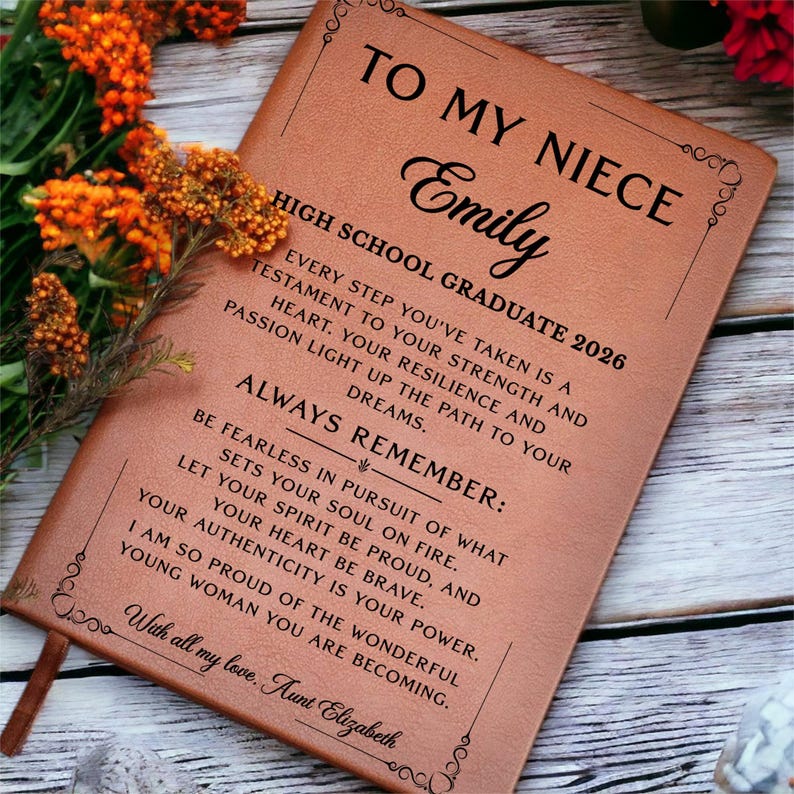 TO MY NIECE
Emily
HIGH SCHOOL GRADUATE 2026
EVERY STEP YOU'VE TAKEN IS A
TESTAMENT TO YOUR STRENGTH AND
HEART. YOUR RESILIENCE AND
PASSION LIGHT UP THE PATH TO YOUR
DREAMS.
ALWAYS REMEMBER:
BE FEARLESS IN PURSUIT OF WHAT
SETS YOUR SOUL ON FIRE.
LET YOUR SPIRIT BE PROUD, AND
YOUR HEART BE BRAVE.
YOUR AUTHENTICITY IS YOUR POWER.
I AM SO PROUD OF THE WONDERFUL
YOUNG WOMAN YOU ARE BECOMING.
With all my love, Aunt Elizabeth